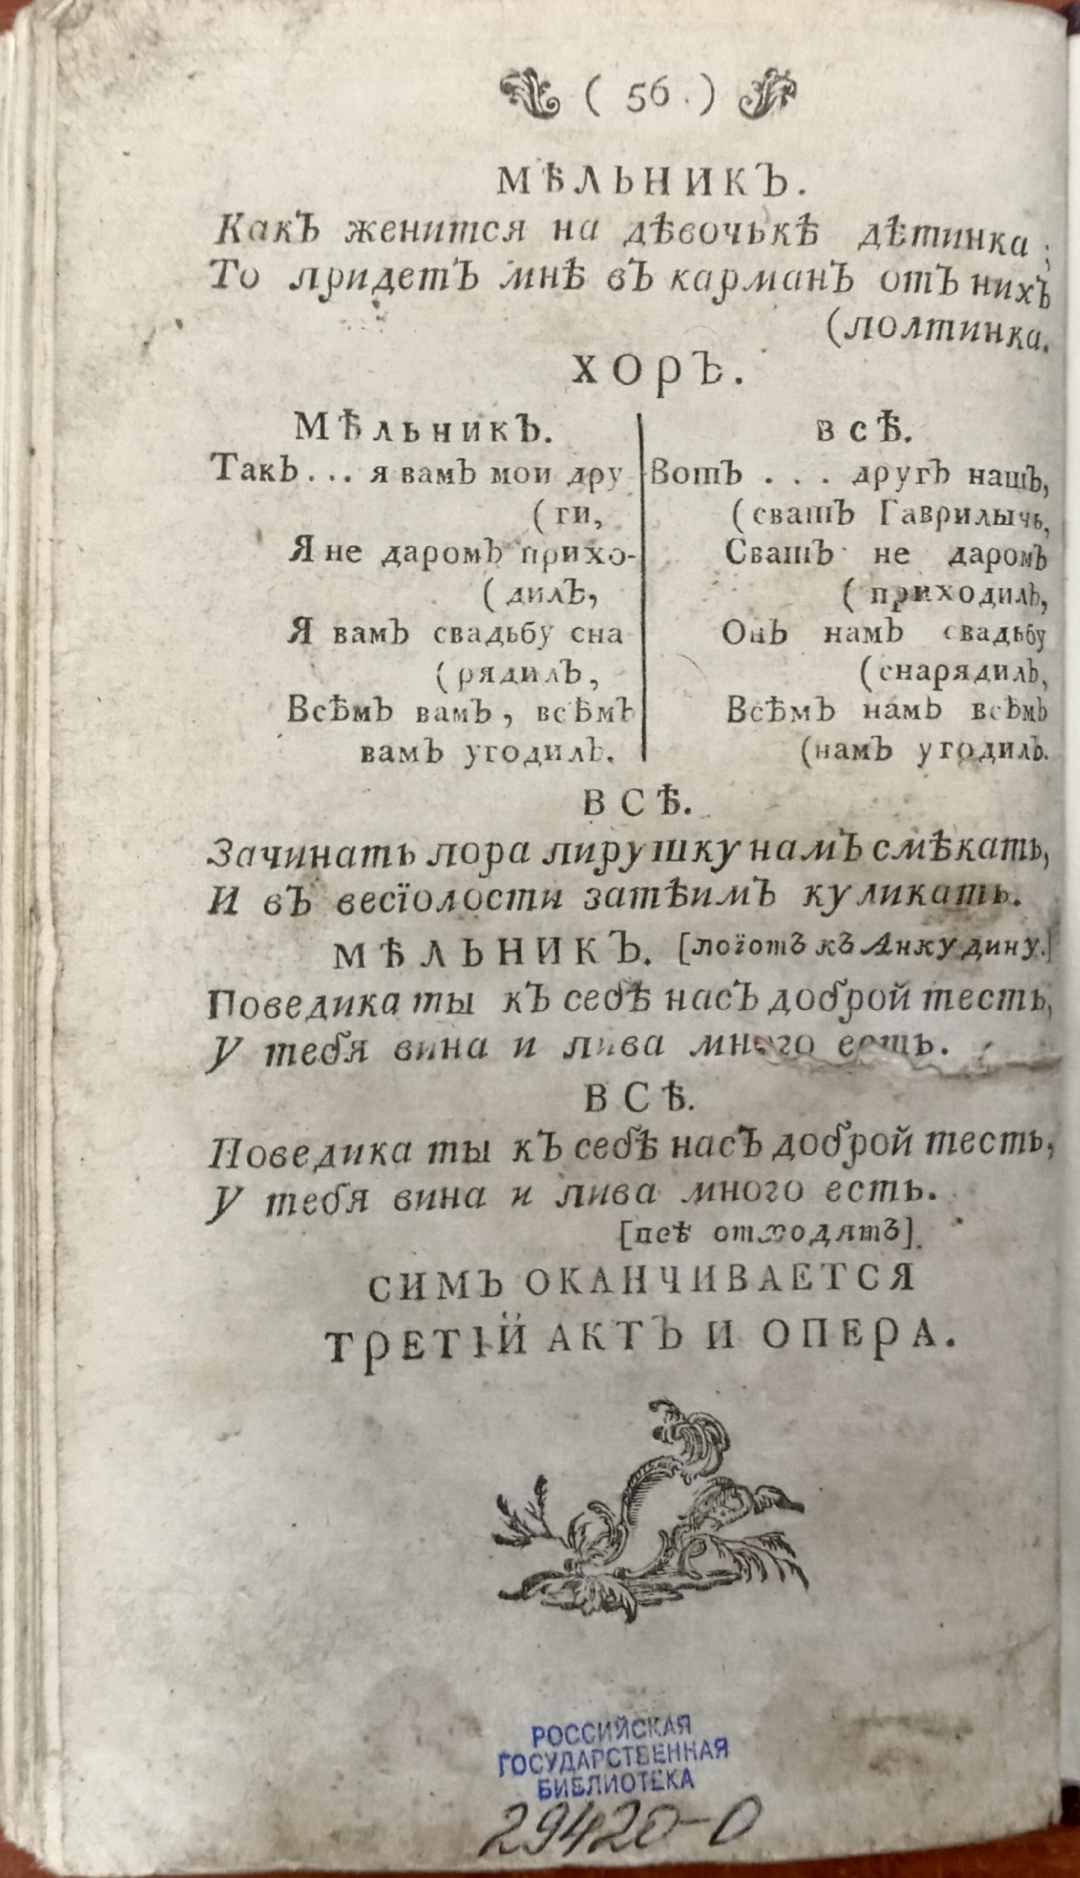 ( 56. )
МѢЛЬНИКЪ.
Какъ женится на дѣвочькѣ дѣтинка;
То придетъ мнѣ въ карманъ отъ нихъ
(полтинка.
ХОРЪ.
Мѣльникъ.
Такъ... я вамъ мои дру
(ги,
Я не даромъ прихо-
(дилъ,
Я вамъ свадьбу сна
(рядилъ,
Всѣмъ вамъ, всѣмъ
вамъ угодилъ.
всѣ.
Вотъ . . . другъ нашъ,
(сватъ Гаврилычь,
Сватъ не даромъ
(приходилъ,
Онъ намъ свадьбу
(снарядилъ,
Всѣмъ намъ всѣмъ
(намъ угодилъ.
ВСѢ.
Зачинать пора пирушку намъ смѣкать,
И въ весіолости затѣимъ куликать.
МѢЛЬНИКЪ. [поіотъ къ Анкудину.]
Поведика ты къ себѣ насъ доброй тесть,
У тебя вина и пива много есть.
ВСѢ.
Поведика ты къ себѣ насъ доброй тесть,
У тебя вина и пива много есть.
[псѣ отходятъ].
СИМЪ ОКАНЧИВАЕТСЯ
ТРЕТІЙ АКТЪ И ОПЕРА.
РОССИЙСКАЯ
ГОСУДАРСТВЕННАЯ
БИБЛИОТЕКА
29420-0